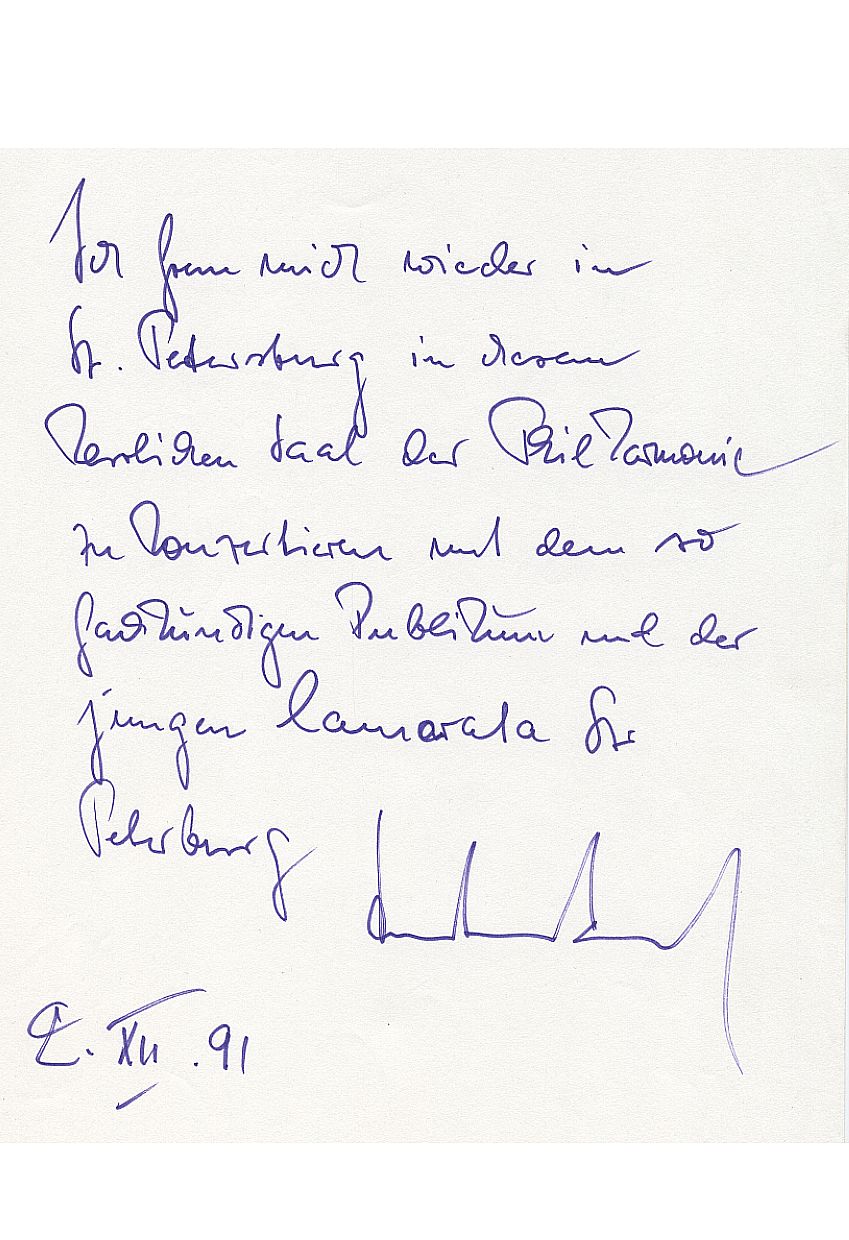 Ich freue mich wieder in
St. Petersburg in diesem
herrlichen Saal der Philharmonie
zu konzertieren mit dem so
fachkundigen Publikum und der
jungen Camarata St.
Petersburg
2. XII. 91